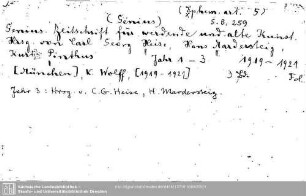 (Ephem. art. 5)
(Genius) S. B. 259
Genius. Zeitschrift für werdende und alte Kunst.
Hrsg. von Carl Georg Heise, Hans Mardersteig,
Kurt Pinthus Jahr 1-3 1919-1921
[München], K. Wolff, [1919-1921] 3 Bde. Fol.
Jahr 3: Hrsg. v. C. G. Heise, H. Mardersteig.
Sächsische Landesbibliothek -
Staats- und Universitätsbibliothek Dresden